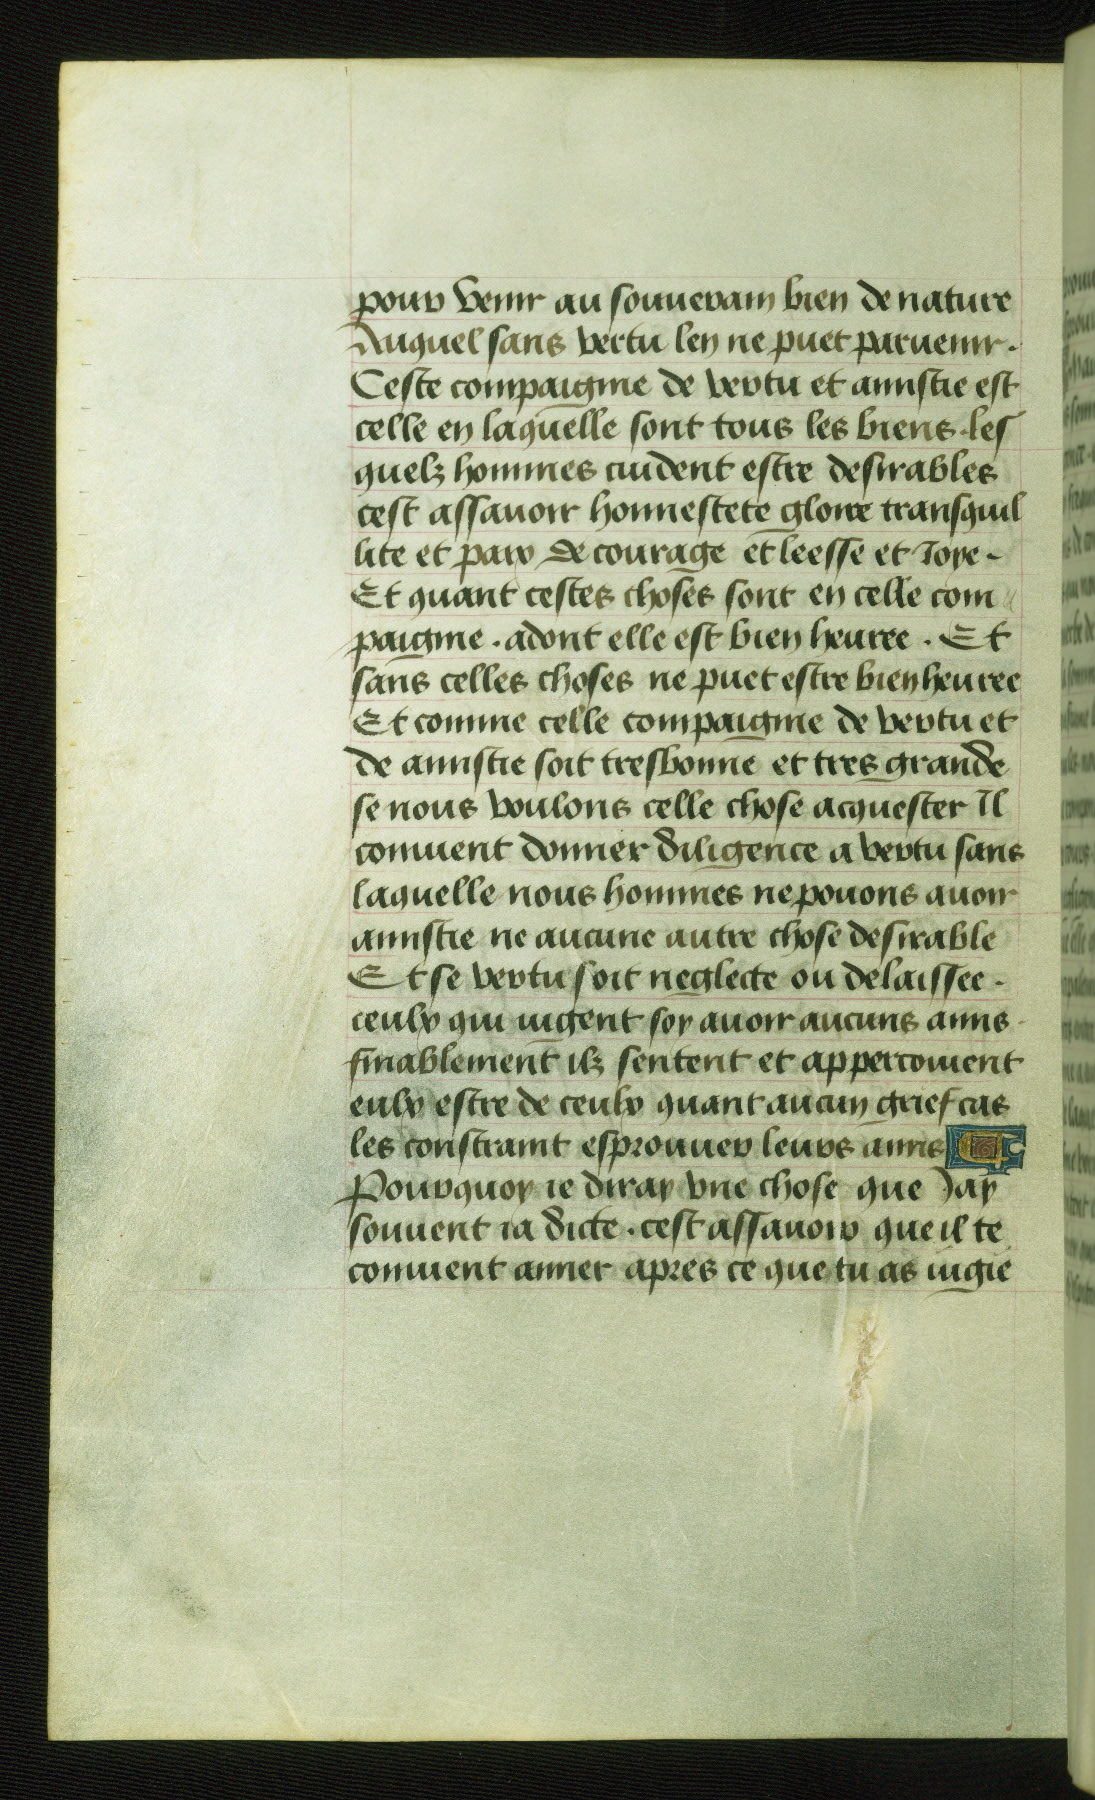 pour venir au souuerain bien de nature
Auquel sans vertu len ne puet paruenir.
Ceste compaignie de vertu et amistie est
celle en laquelle sont tous les biens. les
quelz hommes cuident estre desirables
cest assauoir honnestete gloire transquil
lite et paix de courage et leesse et Ioye.
Et quant cestes choses sont en celle com
paignie. adont elle est bien heuree. Et
sans celles choses ne puet estre bien heuree
Et comme celle compaignie de vertu et
de amistie soit tresbonne et tres grande
se nous voulons celle chose acquester Il
conuient donner diligence a vertu sans
laquelle nous hommes ne pouons auoir
amistie ne aucune autre chose desirable
Et se vertu soit neglecte ou delaissee.
ceulx qui iugent soy auoir aucuns amis
finablement ilz sentent et appercoiuent
eulx estre de ceulx quant aucun grief cas
les constraint esprouuer leurs amis
Pourquoy ie diray vne chose que Jay
souuent ia dicte. cest assauoir que il te
conuient amer apres ce que tu as iugie